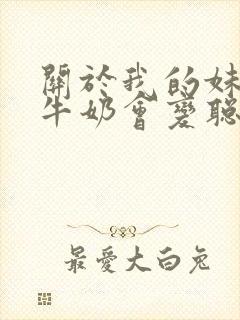 關於我的妹
牛奶會變聰
最愛大白兔